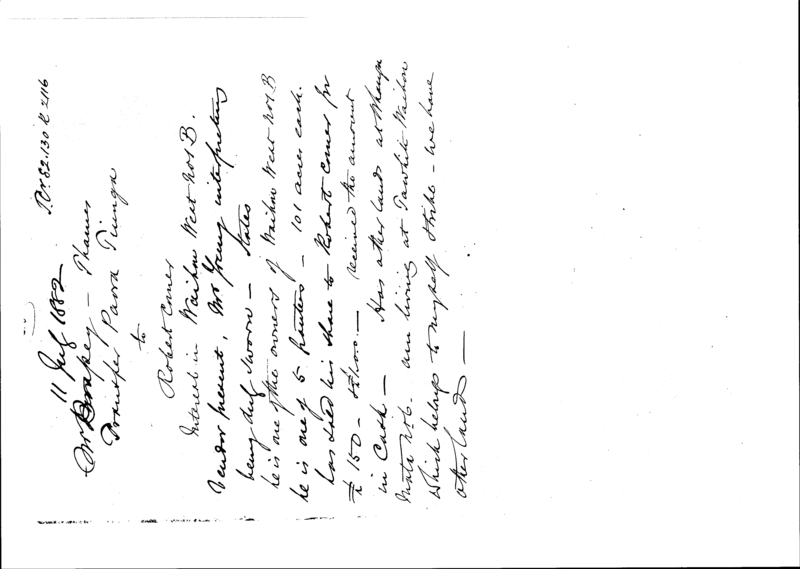 11 July 1882 Pr 82.130 & 2116
Mr Dempsey — Thames
Transfer Paora Tiunga
to
Robert Comer
Interest in Waihou West No 1 B.
Vendor present, Mr Young interpreting
being duly sworn — States
he is one of the owners of Waihou West No 1 B
he is one of 5 grantees — 101 acres each.
has sold his share to Robert Comer for
£ 150 — received the amount
in Cash — Has other lands at
No 6. am living at Waihou
which belongs to myself — we have
other land —